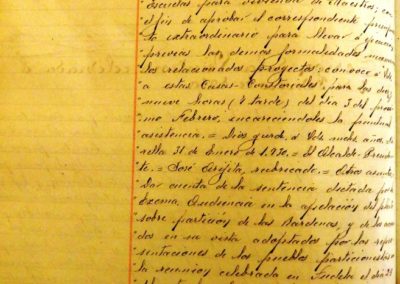 escuelas para vivienda de Maestros, con
el fin de aprobar el correspondiente presupues
to extraordinario para llevar a ejecución,
previas las demás formalidades necesarias
los relacionados proyectos, convoco a Vds.
a estas Casas-Consistoriales, para las diez
nueve horas (7 tarde) del dia 3 del próxi
mo Febrero, encareciéndoles la puntual
asistencia. = Dios guarde a Vds. muchs. años.
31 de Enero de 1.930. = El Alcalde-Presiden
te. = José rubricado. = Otros asuntos
Dar cuenta de la sentencia dictada por la
Excma. Audiencia en la apelación del pleito
sobre partición de las Bardenas, y de los acuer
dos en su vista adoptados por los repre
sentaciones de los pueblos particionistas en
la reunión celebrada en Tudela el dia 28